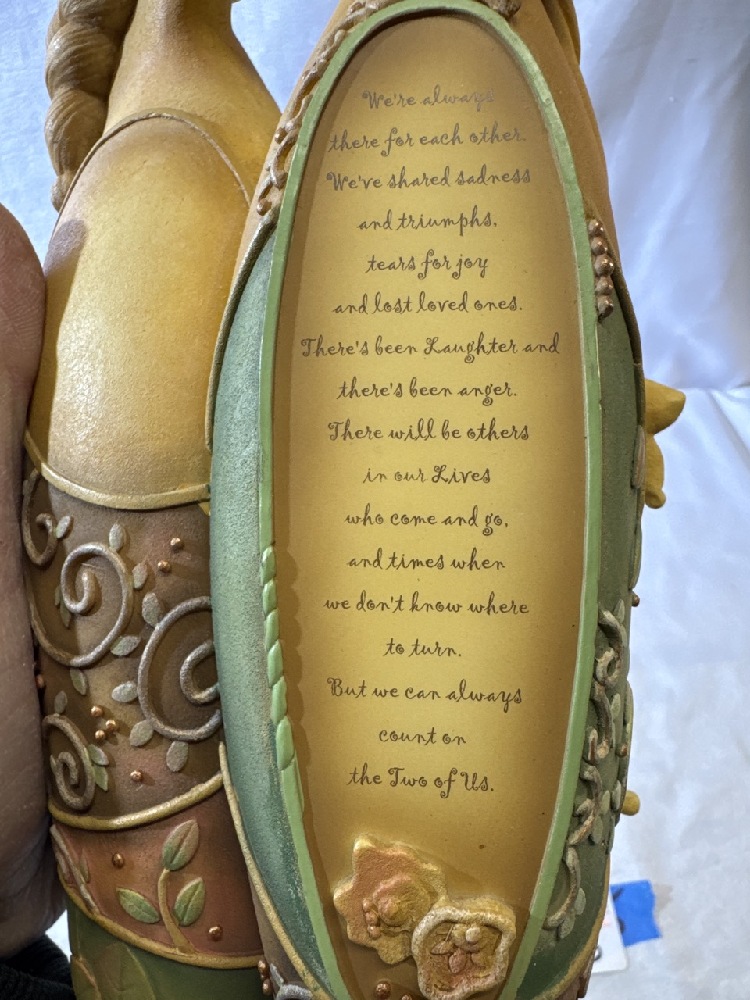 We're always
there for each other.
We've shared sadness
and triumphs,
tears for joy
and lost loved ones.
There's been Laughter and
there's been anger.
There will be others
in our Lives
who come and go,
and times when
we don't know where
to turn.
But we can always
count on
the Two of Us.